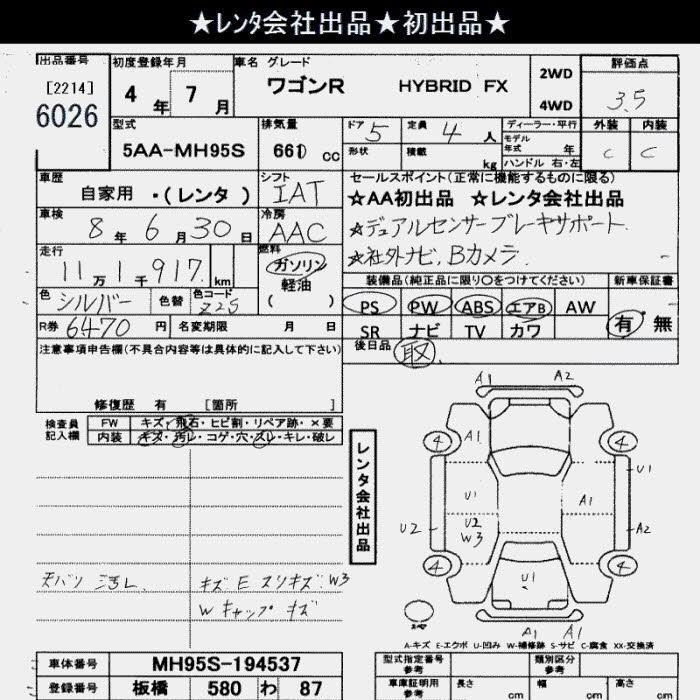 ★レンタ会社出品★初出品★
出品番号 初度登録年月 車名 グレード 評価点
[2214] 4年 7月 ワゴンR HYBRID FX 2WD 3.5
6026 4WD
型式 排気量 ドア 5 定員 4人 ディーラー・平行 外装 内装
5AA-MH95S 660 cc 形状 積載 kg モデル年式 年 C C
ハンドル 右・左
車歴 シフト セールスポイント(正常に機能するものに限る)
自家用 ・(レンタ) IAT ★AA初出品 ★レンタ会社出品
車検 冷房 ☆デュアルセンサーブレーキサポート
8年 6月 30日 AAC ☆社外ナビ、Bカメラ
走行 燃料
11万1千917 km ガソリン 軽油 ( ) 装備品(純正品に限り○をつけてください) 新車保証書
色 シルバー 色替 色コード Z2S PS PW ABS エアB AW 有・無
R券 6470円 名変期限 月 日 SR ナビ TV カワ
注意事項申告欄(不具合内容等は具体的に記入して下さい) 後日品 取
修復歴 有 [箇所
検査員記入欄 FW キズ・飛石・ヒビ割・リペア跡・×要
内装 キズ・汚レ・コゲ・穴・スレ・キレ・破レ
レンタ会社出品
A1 A2
4 A1 4
U1 U1
U2 U2 W3 A1 A2
4 U1 4
A1 A1
スペア
キズ E スリキズ W3
W キャップ キズ
A-キズ E-エクボ U-凹み W-補修跡 S-サビ C-腐食 XX-交換済
車体番号 MH95S-194537 型式指定番号 参考 類別区分 参考
登録番号 板橋 580 わ 87 車庫証明用 参考 長さ cm 幅 cm 高さ cm